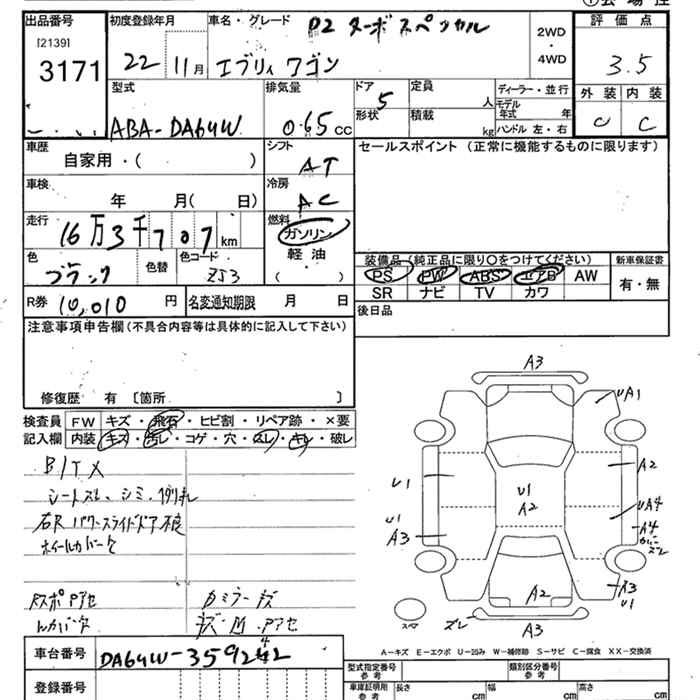 出品番号
[2139]
3171
初度登録年月
22 11月
車名・グレード
PZ ターボ スペシャル
エブリィ ワゴン
2WD
・
4WD
評価点
3.5
外装 内装
C C
型式
ABA-DA64W
排気量
0.65 cc
ドア 5
形状
定員 人
積載 kg
ディーラー・並行
モデル年式 年
ハンドル 左・右
車歴
自家用・( )
シフト
AT
セールスポイント (正常に機能するものに限ります)
車検
年 月( 日)
冷房
AC
走行
16万3千707km
燃料
ガソリン
軽油
( )
色
ブラック
色替
色コード
ZJ3
装備品 (純正品に限り○をつけてください)
新車保証書
PS PW ABS エアB AW
有・無
SR ナビ TV カワ
R券 10,010円
名変通知期限 月 日
後日品
注意事項申告欄(不具合内容等は具体的に記入して下さい)
修復歴 有 〔箇所 〕
検査員
記入欄
FW キズ・飛石・ヒビ割・リペア跡・×要
内装 キズ・汚レ・コゲ・穴・スレ・キレ・破レ
シートスレ、シミ
右R パワースライドドア不良
ホイールカバーケ
A3
UA1
A2
U1
U1
A2
UA4
A4
U1
A3
A2
A3
U1
スレ
A3
スペア
A-キズ E-エクボ U-凹み W-補修跡 S-サビ C-腐食 XX-交換済
車台番号
DA64W-359242
4
登録番号
型式指定番号
参考
類別区分番号
参考
車庫証明用
参考
長さ cm
幅 cm
高さ cm